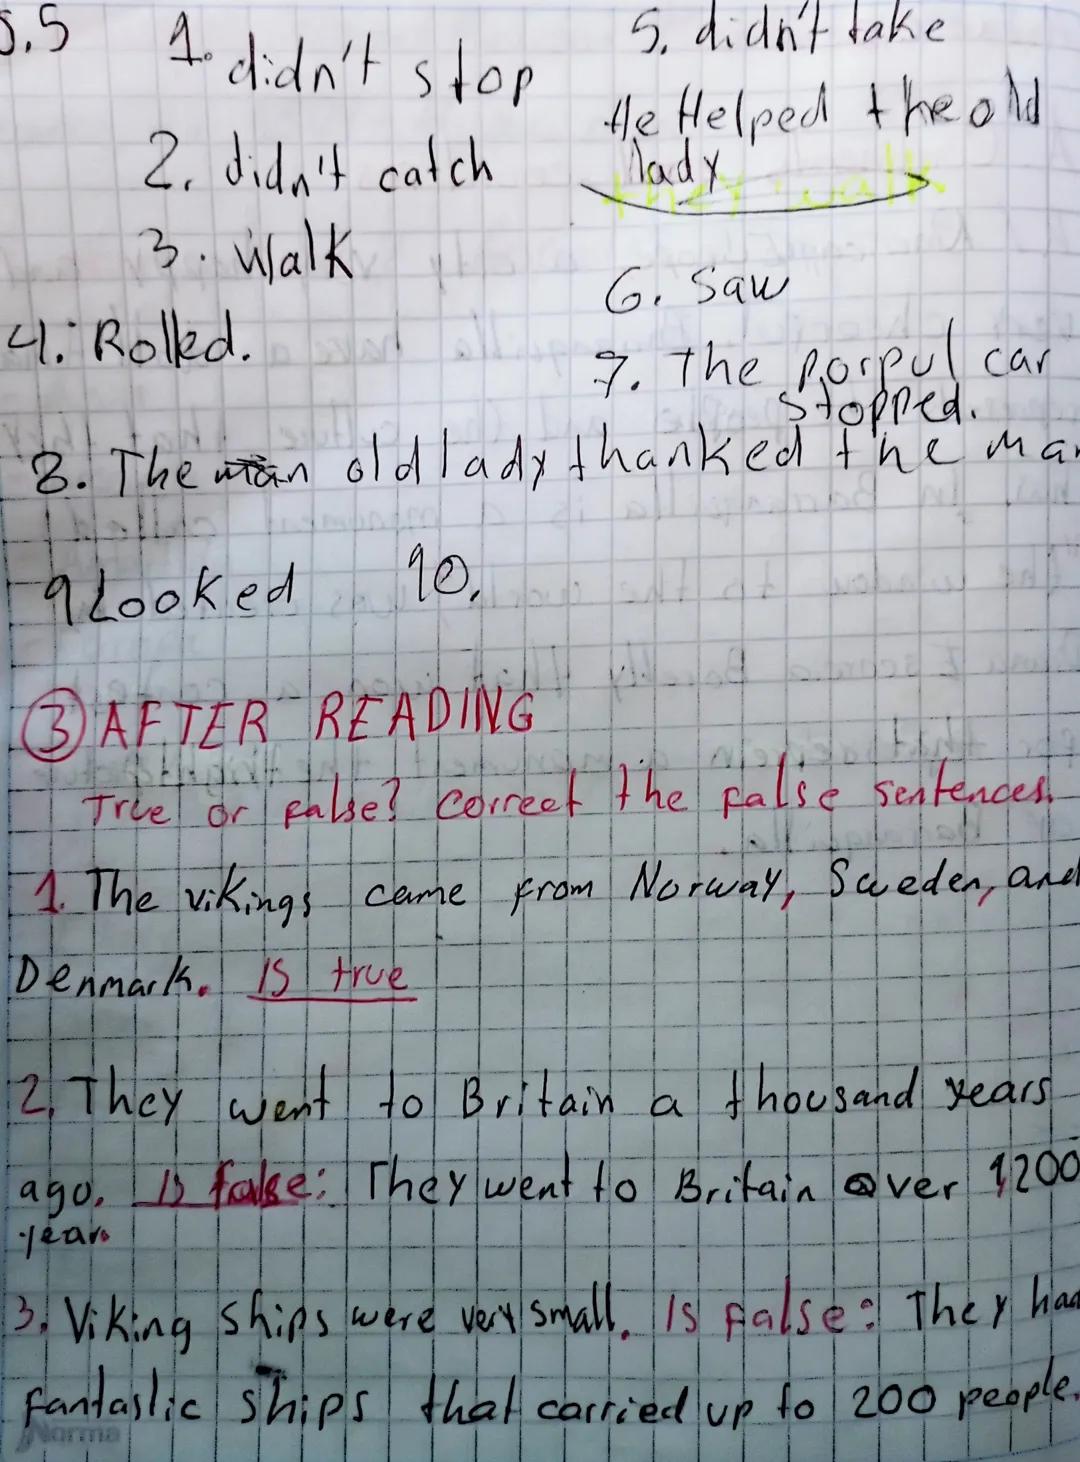 5.5
1. didn't stop
2. didn't catch
3. Walk
4. Rolled.
5. didn't take
He Helped the old
lady
they walk
6. Saw
7. The porpul car
stopped.
8. The man old lady thanked the man
9 Looked 10.
3 AFTER READING
True or false? correct the false sentences.
1. The vikings came from Norway, Sweden, and
Denmark. IS true
2. They went to Britain a thousand years
ago. Is false: They went to Britain over 1200
year.
3. Viking ships were very small. Is false: They had
fantastic ships that carried up to 200 people.
Norma